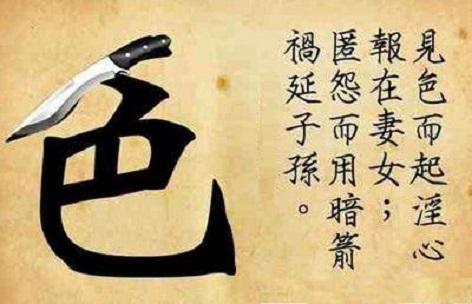 色
見色而起淫心
報在妻女；
匿怨而用暗箭
禍延子孫。